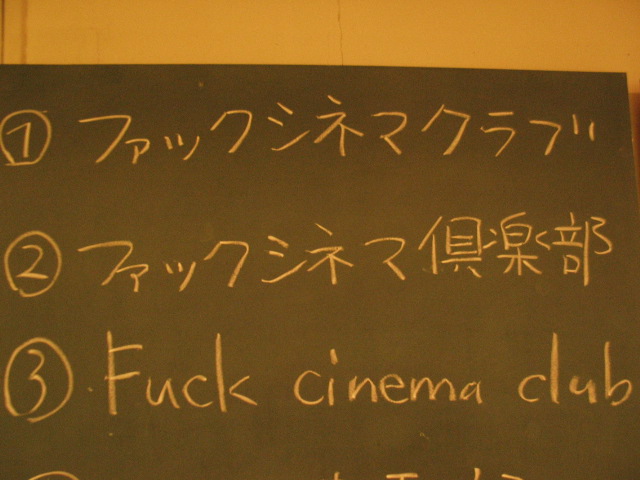 ① ファックシネマクラブ
② ファックシネマ倶楽部
③ Fuck cinema club